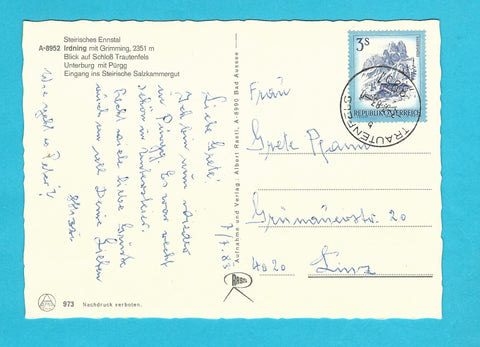 Steirisches Ennstal
A-8952 Irdning mit Grimming, 2351 m
Blick auf Schloß Trautenfels
Unterburg mit Pürgg
Eingang ins Steirische Salzkammergut
7/7.83
Liebe Grete!
Ich bin nun wieder
in Pürgg. Es war recht
schön in
Recht viele liebe Grüße
auch an all Deine Lieben
Wie geht es Peter?
973 Nachdruck verboten.
Aufnahme und Verlag: Albert Rastl, A-8990 Bad Aussee
RABA
3 S
REPUBLIK ÖSTERREICH
TRAUTENFELS
Frau
Grete
Grünauerstr. 20
4020 Linz